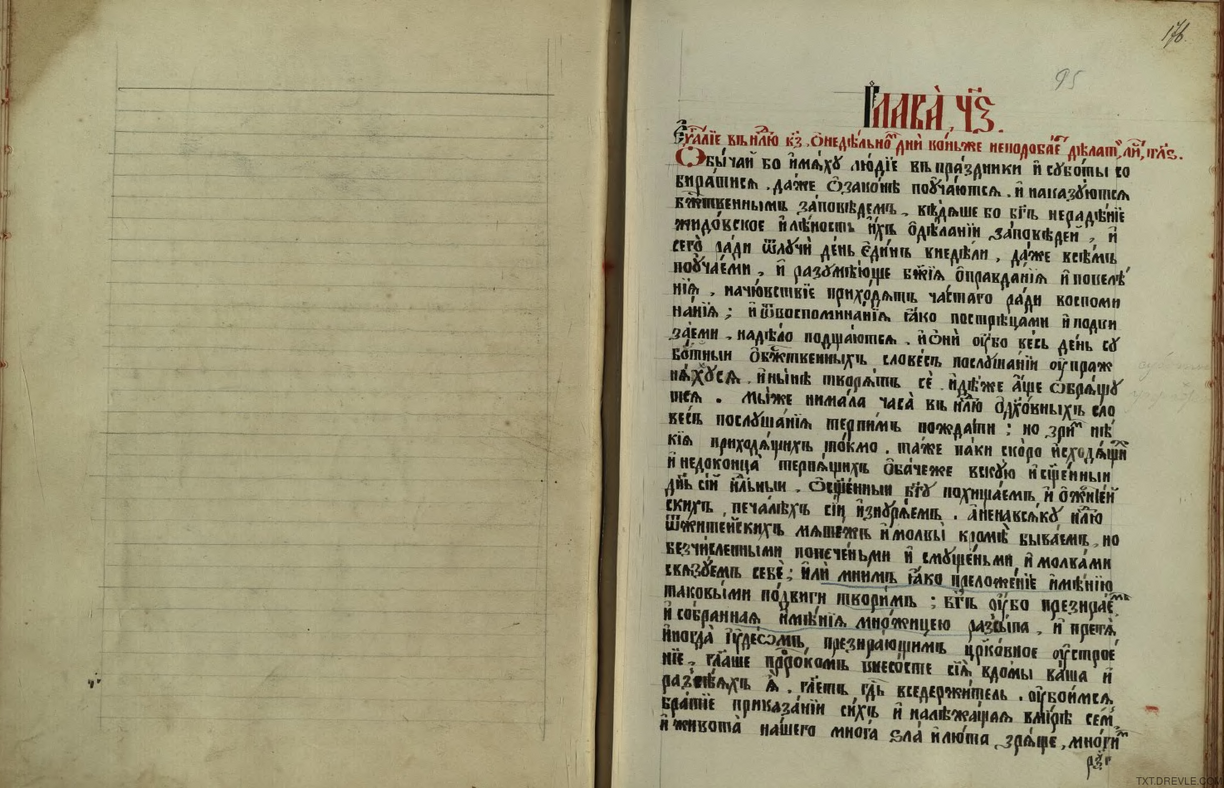 176
95
Глава̀ ч҃з.
Еѵⷢ҇аліе въ нлⷣю к҃з. Ѡ недѣльноⷨ дни̑ кои̑ же неподобаеⷮ дѣлатⷤ,
Ѡбычай бо и҆мѧ́ху лю́діе въ пра́здники и҆ суботы со
бира́тисѧ. да́же ѿ зако́на поꙋча́ютсѧ. и҆ наказу́ютсѧ
бж҃твеннымъ за́повѣдемъ. вѣ́дѧше бо бг҃ъ нераде́ніе
жидо́вское и҆ лѣ́ность и҆́хъ ѡ҆ дѣ́ланіи за́повѣдей, и҆
сего̀ ра́ди ѿлучѝ де́нь є҆ди́нъ в недѣ́ли, да́же всѣ́мъ
поꙋча́еми, и҆ разꙋмѣ́юще бж҃їѧ ѡ҆правда́ніѧ и҆ повелѣ
ніѧ, на чю́вствіе прихо́дѧтъ ча́стаго ра́ди воспоми
на́ніѧ; и҆ ѿ воспомина́ніѧ ꙗ҆́ко пострѣца́ми и҆ подви
за́еми, на дѣ́ло подща́ютсѧ. и҆ ѻ҆ни̑ ѹ҆́бо ве́сь де́нь су
бо́тныи ѡ҆ бж҃твенныхъ слове́съ послꙋша́ніи ѹ҆праж
нѧ́хꙋсѧ. и҆ ны́нѣ творѧ́тъ сѐ. и҆дѣ́же а҆́ще ѡ҆брѧ́щꙋ
тсѧ. Мы́ же ни ма́ла часа̀ въ нлⷣю ѡ҆ дх҃о́вныхъ сло
ве́съ послꙋша́ніѧ терпи́мъ пожда́ти; но зри́ⷨ нѣ́
кіѧ приходѧ́щихъ то́кмо. та́же па́ки ско́ро и҆сходѧ́щиⷯ
и҆ не до конца̀ терпѧ́щихъ ѻ҆ба́че же вскꙋ́ю и҆ сщ҃е́нныи
дн҃ь сі́й нлⷣьныи. ѻ҆сщ҃е́нныи бг҃ꙋ похища́емъ, и҆ ѡ҆ жите́й
скихъ печа́лѣхъ сі́и и҆знꙋрѧ́емъ. а҆ не на всѧ́кꙋ нлⷣю
ѿ жите́йскихъ мѧте́жъ и҆ молвы̀ кромѣ̀ быва́емъ, но
безчи́сленными попече́ньми и҆ смꙋще́ньми и҆ молва́ми
свѧзꙋ́емъ себѐ; и҆лѝ мни́мъ ꙗ҆́ко преложе́ніе и҆мѣ́нію
таковы́ми по́двиги твори́мъ; бг҃ъ ѹ҆́бо презира́еⷮ
и҆ собра́нная и҆мѣ́ніѧ мно́жицею разсы́па, и҆ претѧ̀
и҆ногда̀ і҆ꙋде́ѡмъ, презира́ющимъ цр҃ко́вное ѹ҆строе́
ніе, гл҃а́ше прⷪ҇ро́комъ внесо́сте сіѧ̑ в до́мы ва́ша и҆
развѣ́ѧхъ ѧ҆̀. гл҃етъ гдⷭ҇ь вседержи́тель. ѹ҆бои́мсѧ
бра́тіе приказа́ніи си́хъ и҆ належа́щаѧ в мі́рѣ се́мъ
и҆ живота̀ на́шего мно́га ѕла̀ и҆ лю́та зрѧ́ще, мно́гиⷨ
TXT.DREVLE.COM